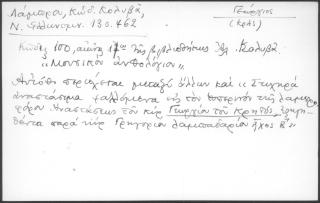 Λάμπρου, Κώδ. Κολυβᾶ,
Ν. Ἑλληνομν. 13ο. 462
Γεώργιος
(Κρής)
Κώδιξ 100, αἰῶνος 17ου τῆς βιβλιοθήκης Κολυβᾶ
"Μουσικὸν ἀνθολόγιον"
περιέχεται μεταξὺ ἄλλων καὶ "Στιχηρὰ
ἀναστάσιμα ψαλλόμενα εἰς τὸν ἑσπερινὸν τῆς λαμπρο-
φόρου Ἀναστάσεως τοῦ κὺρ Γεωργίου τοῦ Κρητός,
θέντα παρὰ κὺρ Γρηγορίου λαμπαδαρίου ἦχος β"